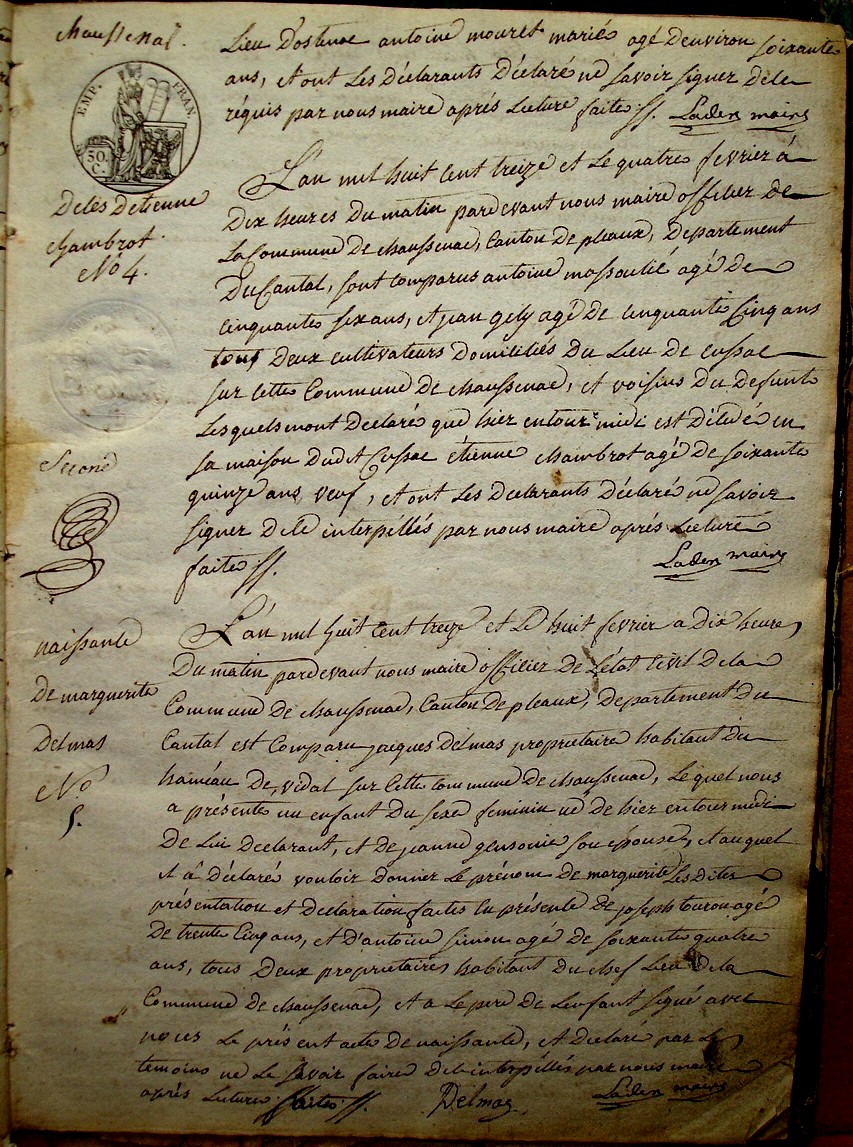 chaussenac.
Lieu d'ostenac antoine mouret mariés agé denviron soixante
ans, et ont Les Déclarants Déclaré ne savoir signer de le
réquis par nous maire aprés Lecture faite ∬. Laden maire
EMP. FRAN.
50. C.
Décès Detienne
chambrot.
No 4.
L'an mil huit cent treize et Le quatre fevrier à
Dix heures Du matin pardevant nous maire officier De
La Commune De chaussenac, Canton De pleaux, Departement
Du Cantal, sont comparus antoine massoulié agé de
cinquante six ans, et jean gely agé de cinquante Cinq ans
tous Deux cultivateurs Domiciliés Du Lieu De Cussac
sur cette Commune De chaussenac, et voisins Du Defunt
Lesquels mont Declaré que hier entour midi est Décédé en
sa maison Dudit Cussac étienne chambrot agé De soixante
quinze ans veuf, et ont Les Declarants Déclaré ne savoir
signer De le interpéllés par nous maire aprés Lecture
faite ∬. Laden maire
Second
naissance
De marguerite
Delmas
No
5.
L'an mil huit Cent treize et Le huit fevrier a Dix heures
Du matin pardevant nous maire officier De L'état Civil De la
Commune De chaussenac, Canton De pleaux, Departement Du
Cantal est Comparu jacques Delmas propriétaire habitant Du
haméau De vidal sur Cette Commune De chaussenac, Le quel nous
a présenté un enfant Du sexe feminin né De hier entour midi
De Lui Declarant, et De jeanne gensonie son épouse, et auquel
il a Déclaré vouloir Donner Le prénom De marguerite Les dites
présentation et Declaration faites En présence De joseph touron agé
De trente Cinq ans, et D'antoine simon agé De soixante quatre
ans, tous Deux propriétaires habitant Du chef Lieu De la
Commune De chaussenac, et a Le pere De Lenfant signé avec
nous Le présent acte De naissance, et Declaré par Les
temoins ne Le savoir faire De le interpéllés par nous maire
aprés Lecture faite ∬. Delmas Laden maire